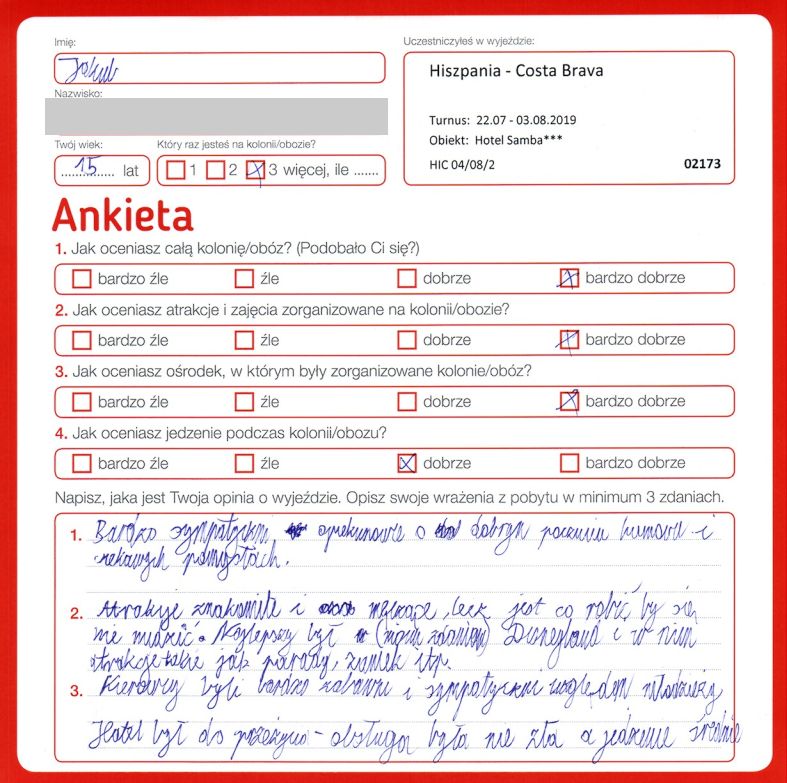 Imię:
Uczestniczyłeś w wyjeździe:
Jakub
Hiszpania - Costa Brava
Nazwisko:
Turnus: 22.07 - 03.08.2019
Obiekt: Hotel Samba***
HIC 04/08/2
02173
Twój wiek:
Który raz jesteś na kolonii/obozie?
15 lat
1 2 3 więcej, ile .......
Ankieta
1. Jak oceniasz całą kolonię/obóz? (Podobało Ci się?)
bardzo źle źle dobrze bardzo dobrze
2. Jak oceniasz atrakcje i zajęcia zorganizowane na kolonii/obozie?
bardzo źle źle dobrze bardzo dobrze
3. Jak oceniasz ośrodek, w którym były zorganizowane kolonie/obóz?
bardzo źle źle dobrze bardzo dobrze
4. Jak oceniasz jedzenie podczas kolonii/obozu?
bardzo źle źle dobrze bardzo dobrze
Napisz, jaka jest Twoja opinia o wyjeździe. Opisz swoje wrażenia z pobytu w minimum 3 zdaniach.
1. Bardzo sympatyczni opiekunowie o dobrym poczuciu humoru i
ciekawych pomysłach.
2. Atrakcje znakomite i męczące, lecz jest co robić by się
nie nudzić. Najlepszy był (moim zdaniem) Disneyland i w nim
atrakcje takie jak parady, zamek itp.
3. Kierowcy byli bardzo zabawni i sympatyczni względem młodzieży
Hotel był do przeżycia - obsługa była nie zła a jedzenie średnie